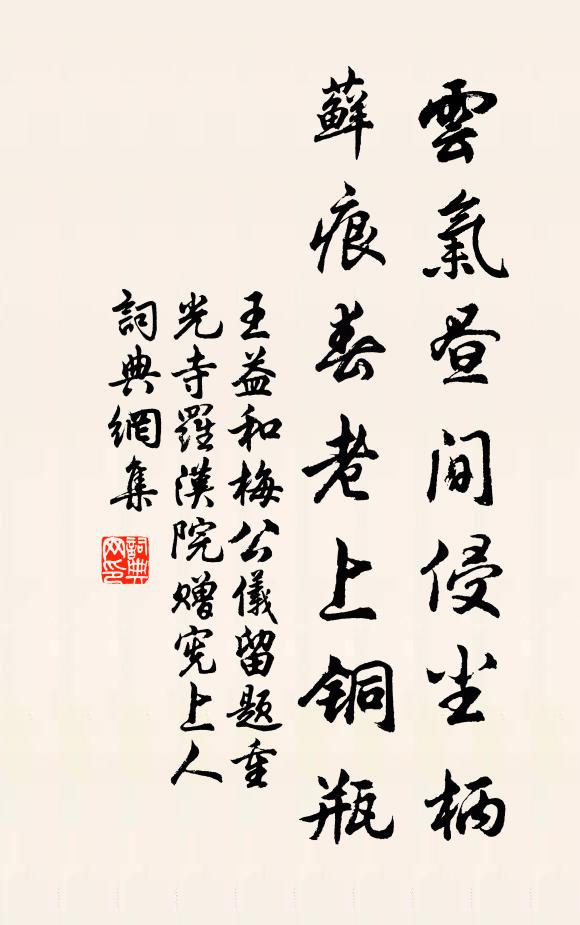 雲氣昼間侵尘柄
蘚痕春老上銅瓶
王益和梅公儀留題重
光寺羅漢院贈宪上人
詞典網集
詞典网印